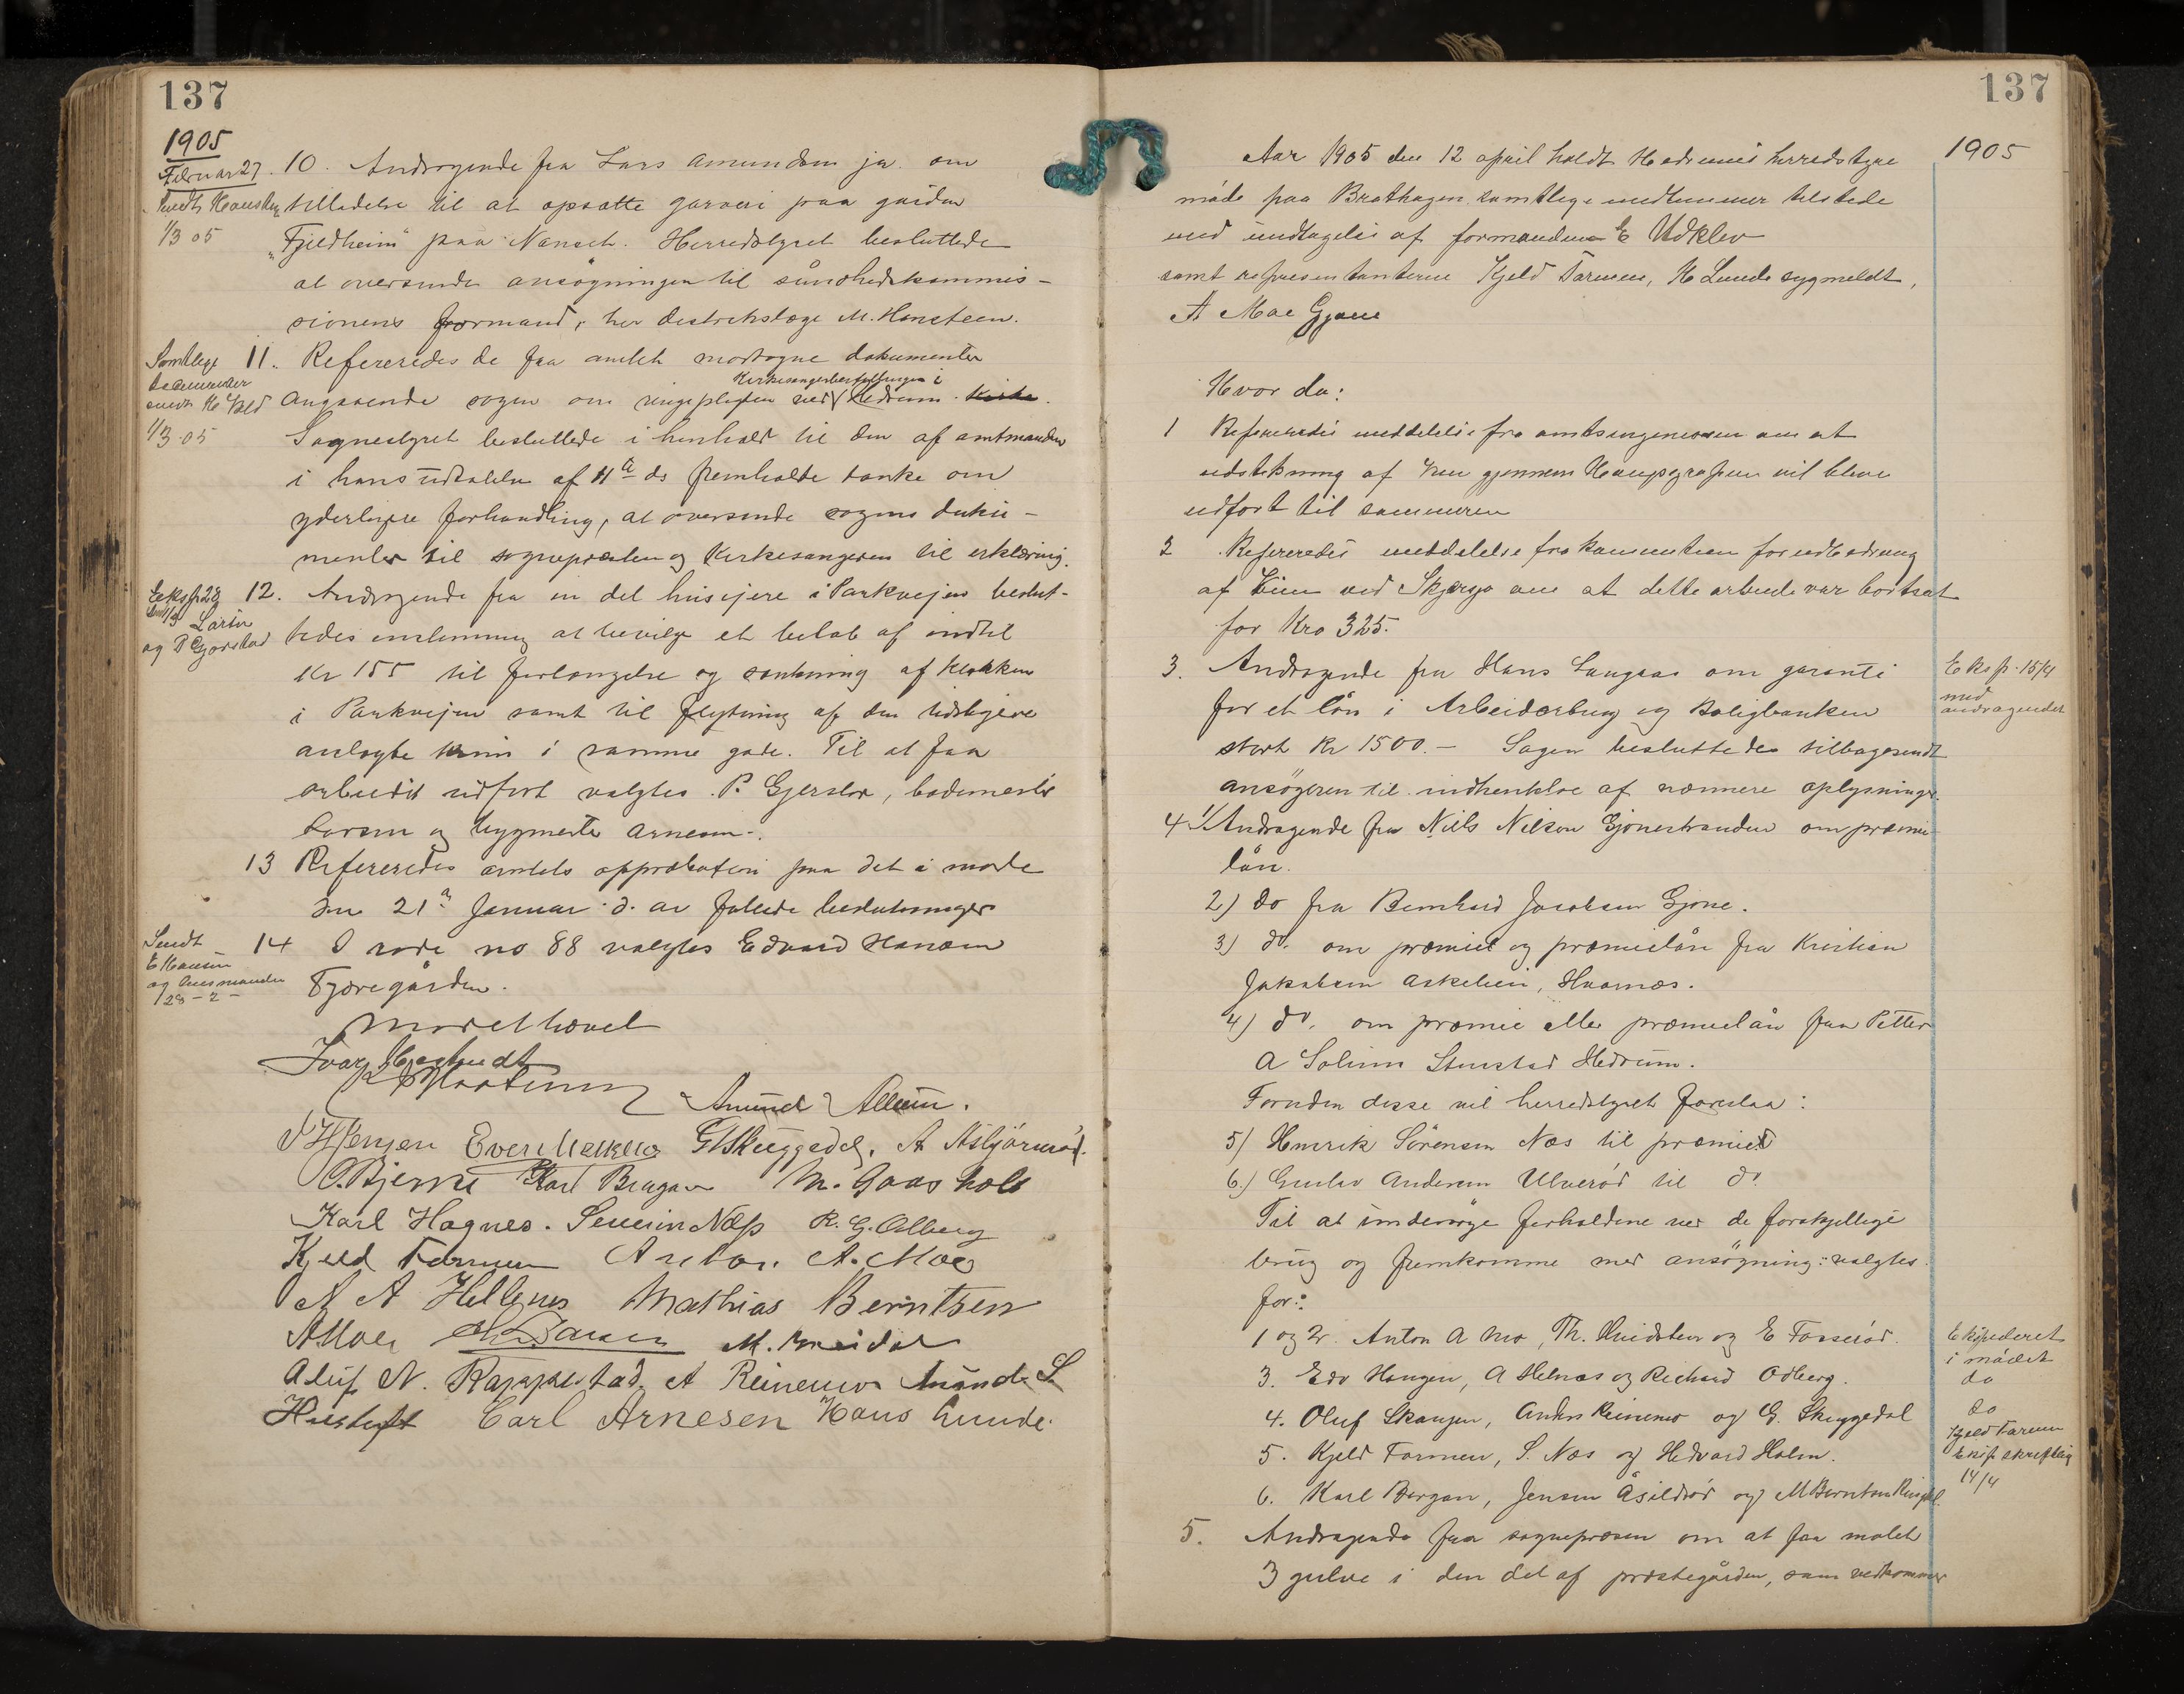 137
1905
Februar 27.
10. Andragende fra Lars Amundsen jr. om
tilladelse til at opsætte garveri paa gaarden
"Fjeldheim" paa Nanset. Herredstyret besluttede
at oversende ansøgningen til sundhedskommis-
sionens formand, hr distriktslæge M. Hansteen.
1/3 05
11. Refereredes de fra amtet modtagne dokumenter
Kirkesangerbestillingen i
angaaende sagen om ringepligten ved Hedrum Kirke.
Sognestyret besluttede i henhold til den af amtmanden
i hans udtalelse af 11te ds fremholdte tanke om
yderligere forhandling, at oversende sagens doku-
menter til sognepresten og Kirkesangeren til erklæring.
Samtlige
dokumenter
1/3 05
12. Andragende fra en del husejere i Parkvejen beslut-
tedes enstemmig at bevilge et beløb af indtil
Kr 155 til forlængelse og sænkning af kloakken
i Parkvejen samt til flytning af den tidligere
anlagte kum i samme gade. Til at faa
arbeidet udført valgtes P. Gjerstad, bademester
Larsen og bygmester Arnesen.
Eksp 28
Larsen
og P Gjerstad
13 Refereredes amtets approbation paa det i møde
den 21de Januar d. aar fattede beslutninger
14 I rode no 88 valgtes Edvard Hansen
Fjæregården.
Sendt
E Hansen
28-2-
mødet hævet
Amund Allum.
J H Jensen G Skuggedal. A Asbjørnrød.
O. Bjerke Karl Bergan M. Gaasholt
Karl Hagnes. Severin Næss R. G. Odberg
Kjeld Farmen Anton A. Moe
A A Hellenes Mathias Berntsen
A Moen
Oluf N. Rappestad. A Reinemo Amund S
Carl Arnesen Hans Lunde.
137
1905
Aar 1905 den 12 april holdt Hedrums herredstyre
møde paa Brathagen samtlige medlemmer tilstede
med undtagelse af formanden E Udklev
samt repræsentanterne Kjeld Farmen, H Lunde sygmeldt,
A Moe Gjone
Hvor da:
1 Refereredes meddelelse fra amtsingeniøren om at
udstikning af linen gjennem Haugsgrafsen vil blive
udført til sommeren
2 Refereredes meddelelse fra kommiteen for udbedring
af veien ved Skjærsjø om at dette arbeide var bortsat
for Kro 325.
3. Andragende fra Hans Langaas om garanti
for et lån i Arbeiderbrug og Boligbanken
stort Kr 1500.- Sagen besluttedes tilbagesendt
ansøgeren til indhentelse af nærmere oplysninger.
Eksp. 15/4
med
andragendet
4 1/ Andragende fra Niels Nilsen Gjonestranden om præmie-
lån.
2) do fra Bernhard Jacobsen Gjone.
3) do. om præmie og præmielån fra Kristian
Jakobsen Askeheim, Hvarnes.
4) do. om præmie eller præmielån fra Petter
A Solum Stenstad Hedrum.
Foruden disse vil herredstyret foreslaa:
5) Henrik Sørensen Næs til præmie
6.) Gustav Andersen Ulverød til do.
Til at undersøge forholdene ved de forskjellige
brug og fremkomme med ansøgning: valgtes
for:
1 og 2. Anton A Mo, Th. Hvidsten og E Fosserød.
3. Edv Haugen, A Helnæs og Richard Odberg.
4. Oluf Skaugen, Anders Reinemo og G. Skuggedal
5. Kjeld Farmen, S. Næs og Hedvard Holm.
6. Karl Bergan, Jensen Åsildrød og M Berntsen
Ekspederet
i mødet
do
do
Kjeld Farmen
Eksp. skriftlig
14/4
5. Andragende fra sognepresten om at faa malet
3 gulve i den del af præstegården, som vedkommer